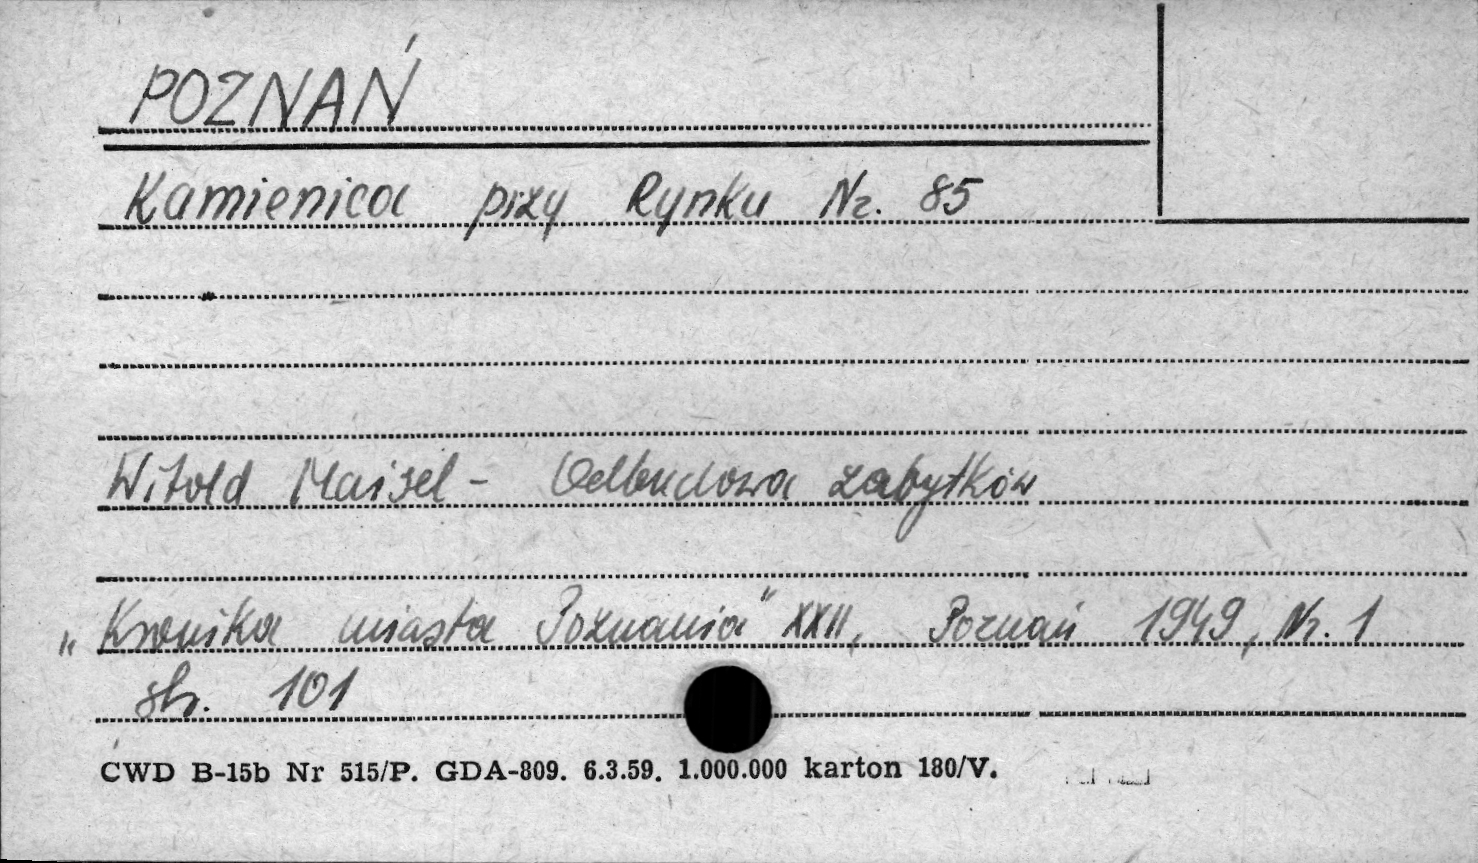 POZNAŃ
Kamienica przy Rynku Nr. 85
Witold Maisel - Odbudowa zabytków
„Kronika miasta Poznania" XXII, Poznań 1949, Nr. 1
str. 101
CWD B-15b Nr 515/P. GDA-809. 6.3.59. 1.000.000 karton 180/V.